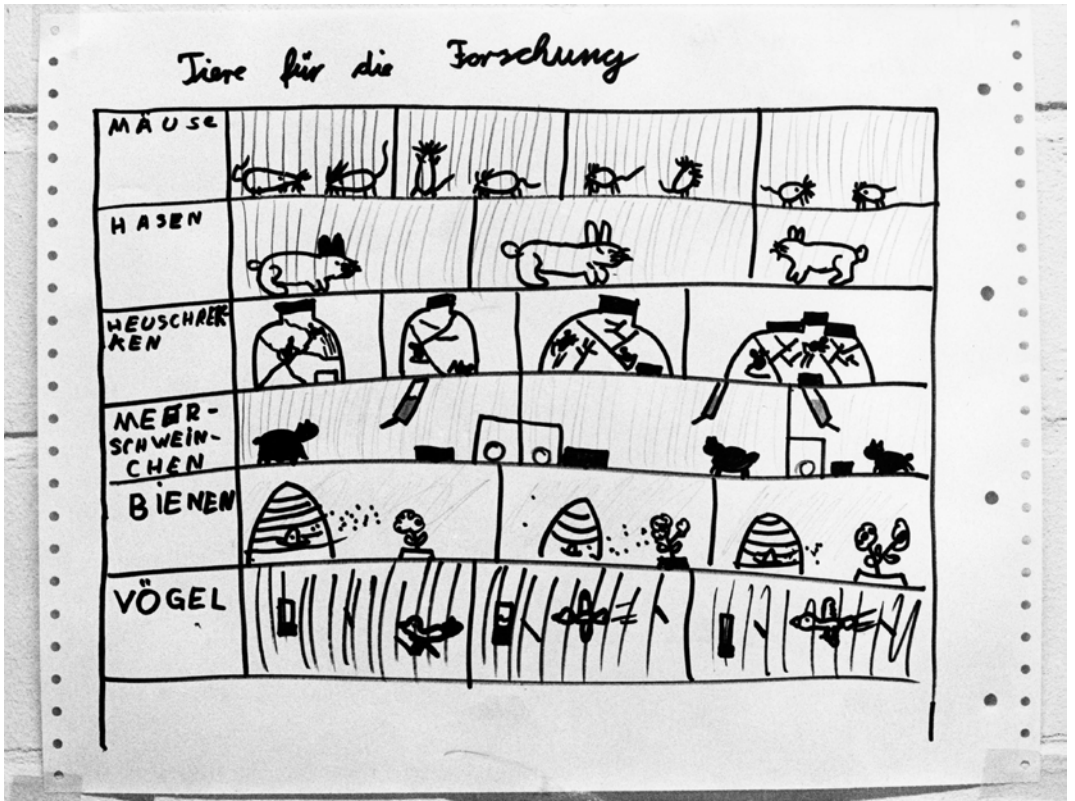 Tiere für die Forschung
MÄUSE
HASEN
HEUSCHREK
KEN
MEER-
SCHWEIN-
CHEN
BIENEN
VÖGEL